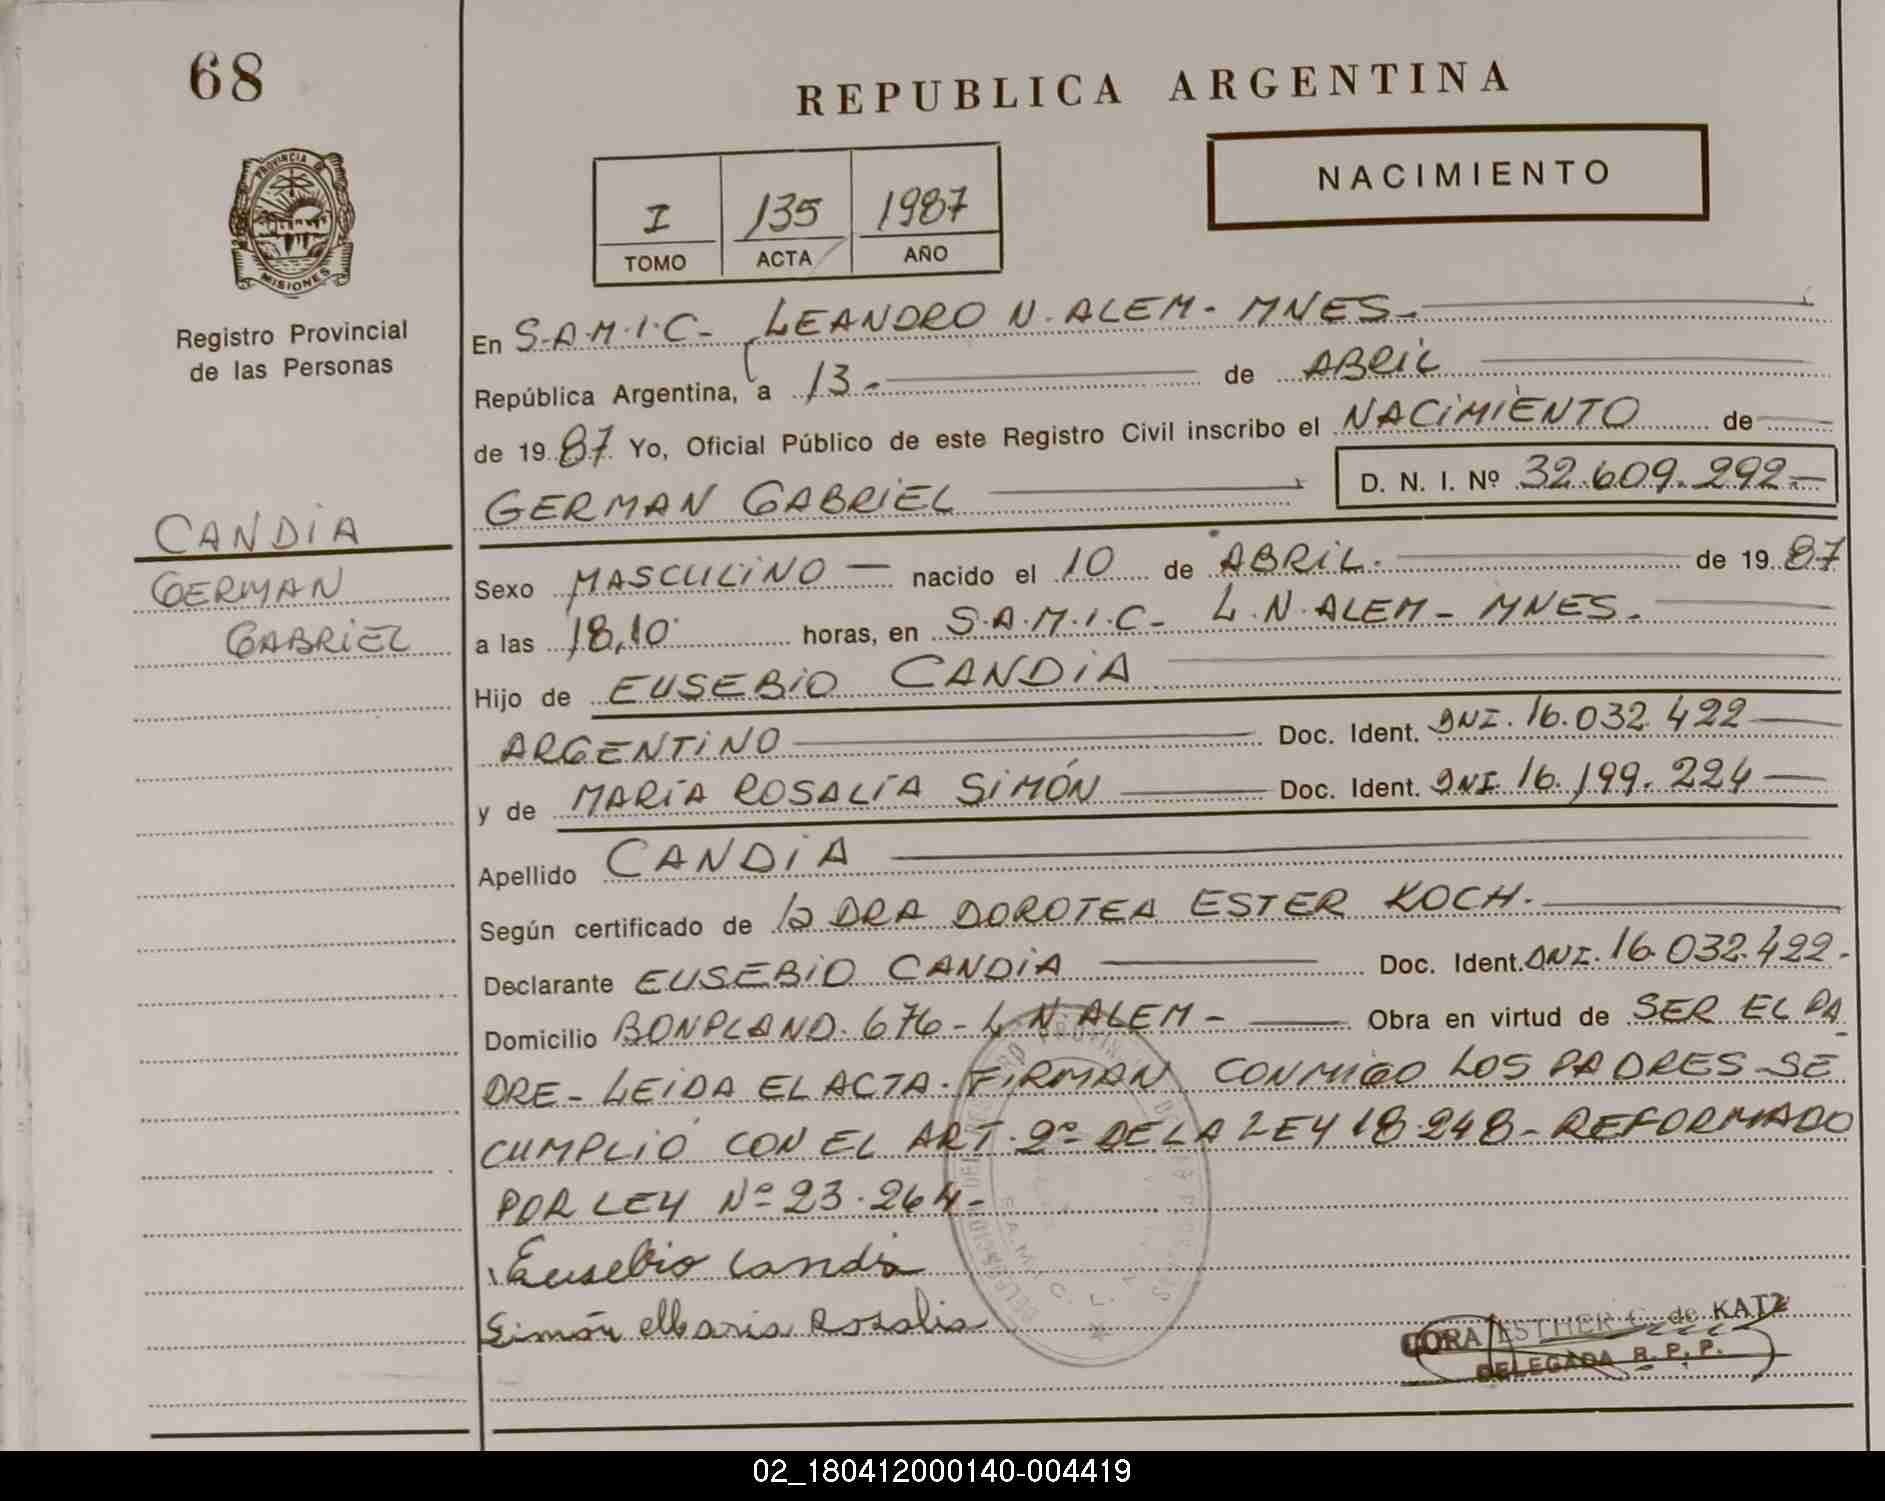 68
REPUBLICA ARGENTINA
NACIMIENTO
PROVINCIA DE
MISIONES
Registro Provincial
de las Personas
I 135 1987
TOMO ACTA AÑO
En S.A.M.I.C- LEANDRO N. ALEM- MNES-
República Argentina, a 13- de ABRIL
de 1987 Yo, Oficial Público de este Registro Civil inscribo el NACIMIENTO de
GERMAN GABRIEL D. N. I. Nº 32.609.292-
CANDIA
GERMAN
GABRIEL
Sexo MASCULINO — nacido el 10 de ABRIL. de 1987
a las 18,10 horas, en S.A.M.I.C- L.N.ALEM- MNES-
Hijo de EUSEBIO CANDIA
ARGENTINO Doc. Ident. DNI.16.032.422
y de MARÍA ROSALÍA SIMÓN Doc. Ident. DNI.16.199.224
Apellido CANDIA
Según certificado de la DRA DOROTEA ESTER KOCH.
Declarante EUSEBIO CANDIA Doc. Ident. DNI.16.032.422-
Domicilio BONPLAND.676-L.N.ALEM- Obra en virtud de SER EL PA
DRE- LEIDA EL ACTA. FIRMAN CONMIGO LOS PADRES-SE
CUMPLIÓ CON EL ART.2º DE LA LEY 18.248-REFORMADO
POR LEY Nº 23.264-
Eusebio Candia
Simón Maria Rosalia
S.A.M.I.C. L.
CORA ESTHER C. de KATZ
DELEGADA R. P. P.
02_180412000140-004419